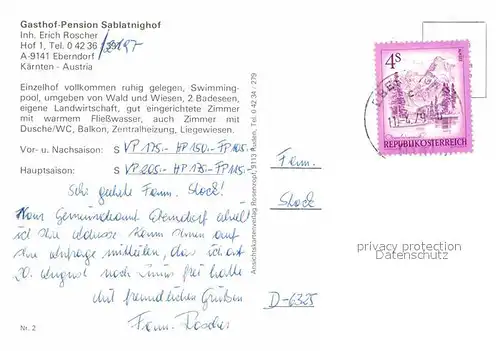 Gasthof-Pension Sablatnighof
Inh. Erich Roscher
Hof 1, Tel. 0 42 36 / 391
A-9141 Eberndorf
Kärnten - Austria
Einzelhof vollkommen ruhig gelegen, Swimming-
pool, umgeben von Wald und Wiesen, 2 Badeseen,
eigene Landwirtschaft, gut eingerichtete Zimmer
mit warmem Fließwasser, auch Zimmer mit
Dusche/WC, Balkon, Zentralheizung, Liegewiesen.
Vor- u. Nachsaison: S VP 175.- HP 150.- FP 105.-
Hauptsaison: S VP 205.- HP 175.- FP 115.-
Sehr geehrte Fam. Stock!
Vom Gemeindeamt Eberndorf erhielt
ich Ihre Addresse kann Ihnen auf
Ihre Anfrage mitteilen, das ich ab
20. August noch Zimmer frei hätte
mit freundlichen Grüßen
Fam. Roscher
Nr. 2
Ansichtskartenverlag Rosenzopf, 9113 Ruden, Tel. 0 42 34 - 279
4S
REPUBLIK ÖSTERREICH
Fam.
Stock
D-6325
privacy protection
Datenschutz